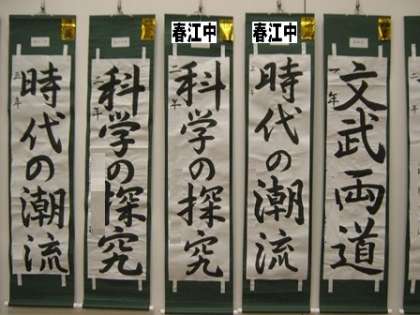 文武両道
一年
春江中
時代の潮流
春江中
科学の探究
二年
科学の探究
二年
時代の潮流
三年